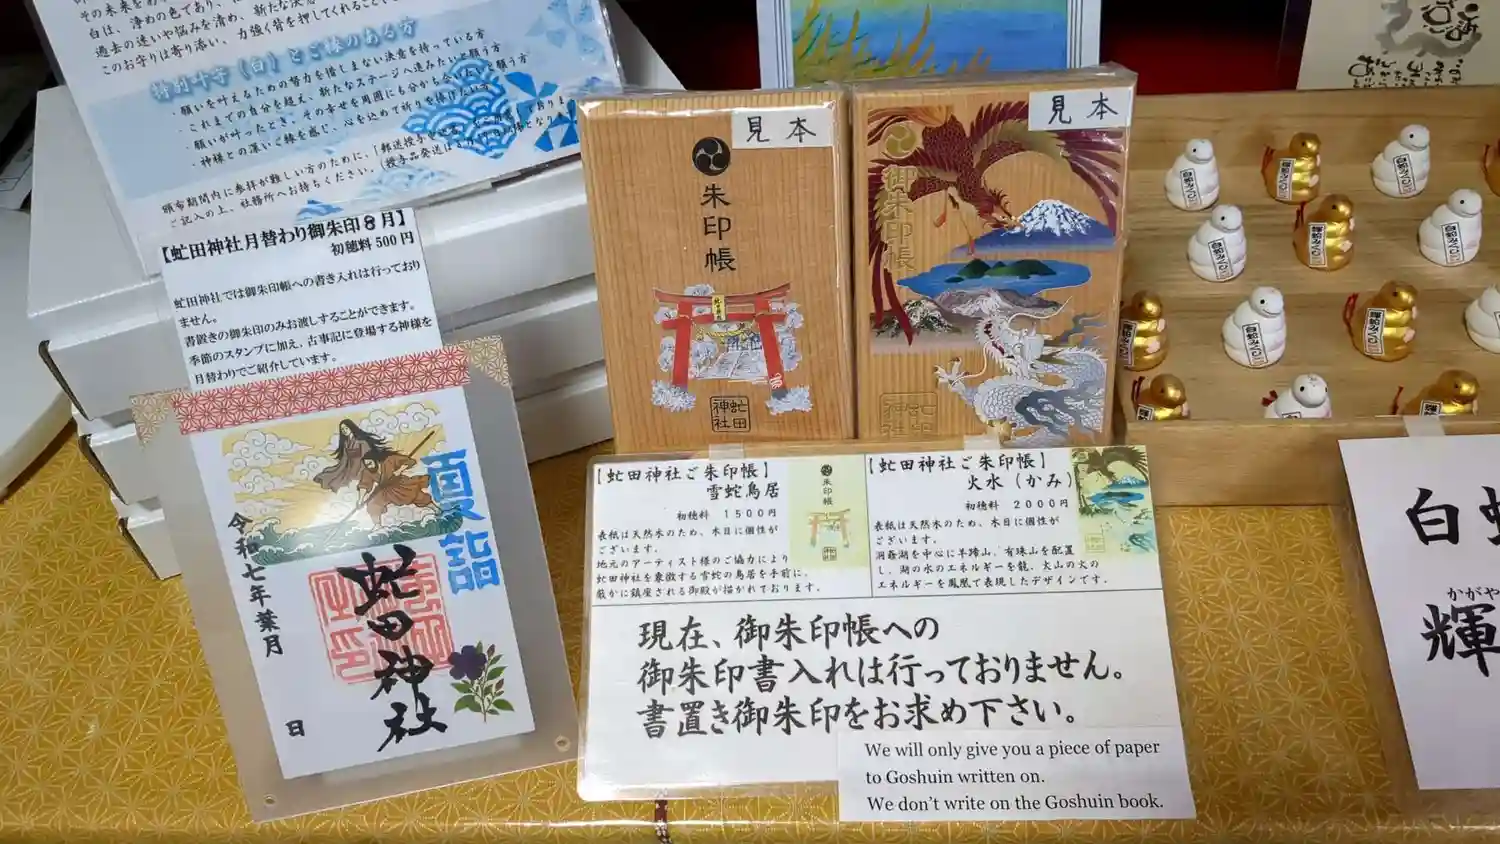 過去の迷いや悩みを清め、新たな決意
このお守りは寄り添い、力強く背を押してくれること
特別叶守(白)とご縁のある方
・願いを叶えるための努力を惜しまない決意を持っている方
・これまでの自分を超え、新たなステージへ進みたいと願う方
・願いが叶ったとき、その幸せを周囲にも分かち合いたいと願う方
・神様との深いご縁を感じ、心を込めて祈りを捧げたい方
頒布期間内に参拝が難しい方のために、「郵送授与
ご記入の上、社務所へお持ちください。(授与品発送は
【虻田神社月替わり御朱印8月】
初穂料500円
虻田神社では御朱印帳への書き入れは行っており
ません。
書置きの御朱印のみお渡しすることができます。
季節のスタンプに加え、古事記に登場する神様を
月替わりでご紹介しています。
夏詣
令和七年葉月
日
虻田神社
見本
朱印帳
虻田神社
見本
御朱印帳
虻田神社
【虻田神社ご朱印帳】
雪蛇鳥居
初穂料 1500円
表紙は天然木のため、木目に個性が
ございます。
地元のアーティスト様のご協力により
虻田神社を象徴する雪蛇の鳥居を手前に、
厳かに鎮座される御殿が描かれております。
朱印帳
【虻田神社ご朱印帳】
火水(かみ)
初穂料 2000円
表紙は天然木のため、木目に個性が
ございます。
洞爺湖を中心に羊蹄山、有珠山を配置
し、湖の水のエネルギーを龍、火山の火の
エネルギーを鳳凰で表現したデザインです。
現在、御朱印帳への
御朱印書入れは行っておりません。
書置き御朱印をお求め下さい。
We will only give you a piece of paper
to Goshuin written on.
We don't write on the Goshuin book.
白蛇みくじ
輝蛇みくじ
白蛇みくじ
白蛇みくじ
輝蛇みくじ
白蛇みくじ
輝蛇みくじ
白蛇みくじ
輝蛇みくじ
白
かがや
輝